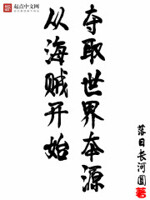 起点中文网
夺取世界本源
从海贼开始
落日长河圆
著